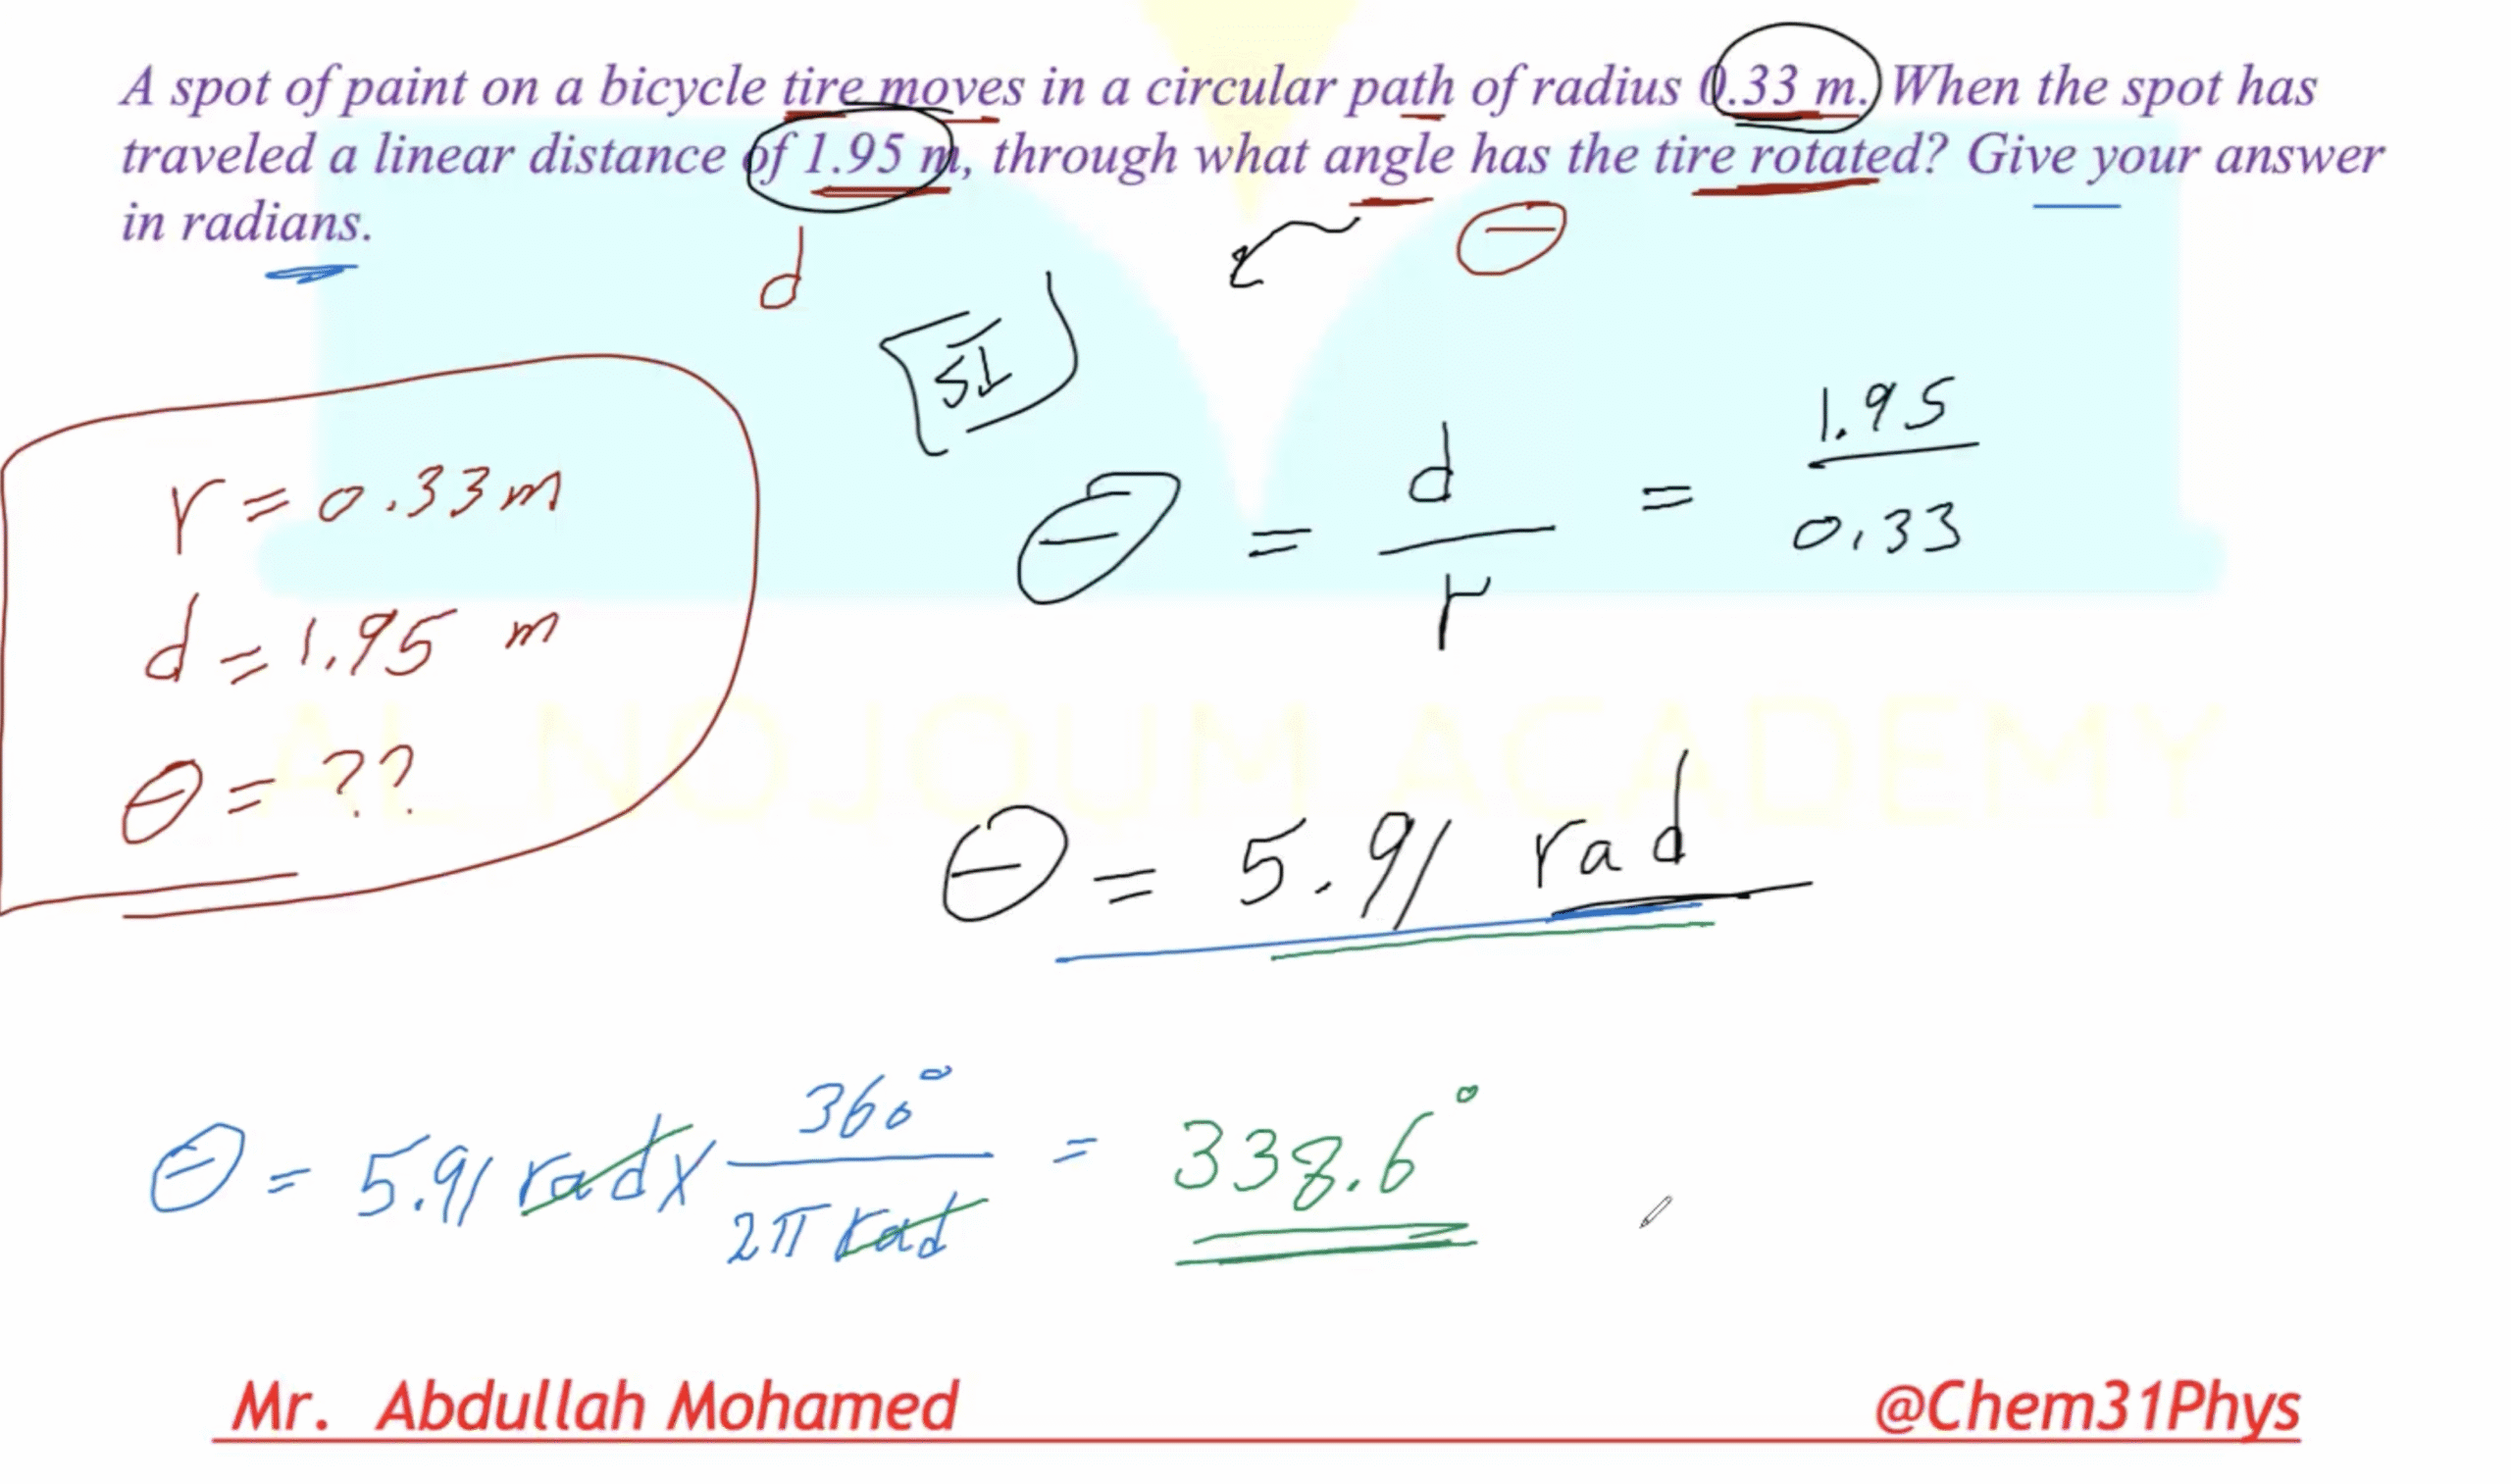 A spot of paint on a bicycle tire moves in a circular path of radius 0.33 m. When the spot has
traveled a linear distance of 1.95 m, through what angle has the tire rotated? Give your answer
in radians.
d
θ
SI
r = 0.33 m
d = 1.95 m
θ = ??
θ = d/r = 1.95/0.33
AL NOJOUM ACADEMY
θ = 5.91 rad
θ = 5.91 rad x 360°/2π rad = 338.6°
Mr. Abdullah Mohamed
@Chem31Phys